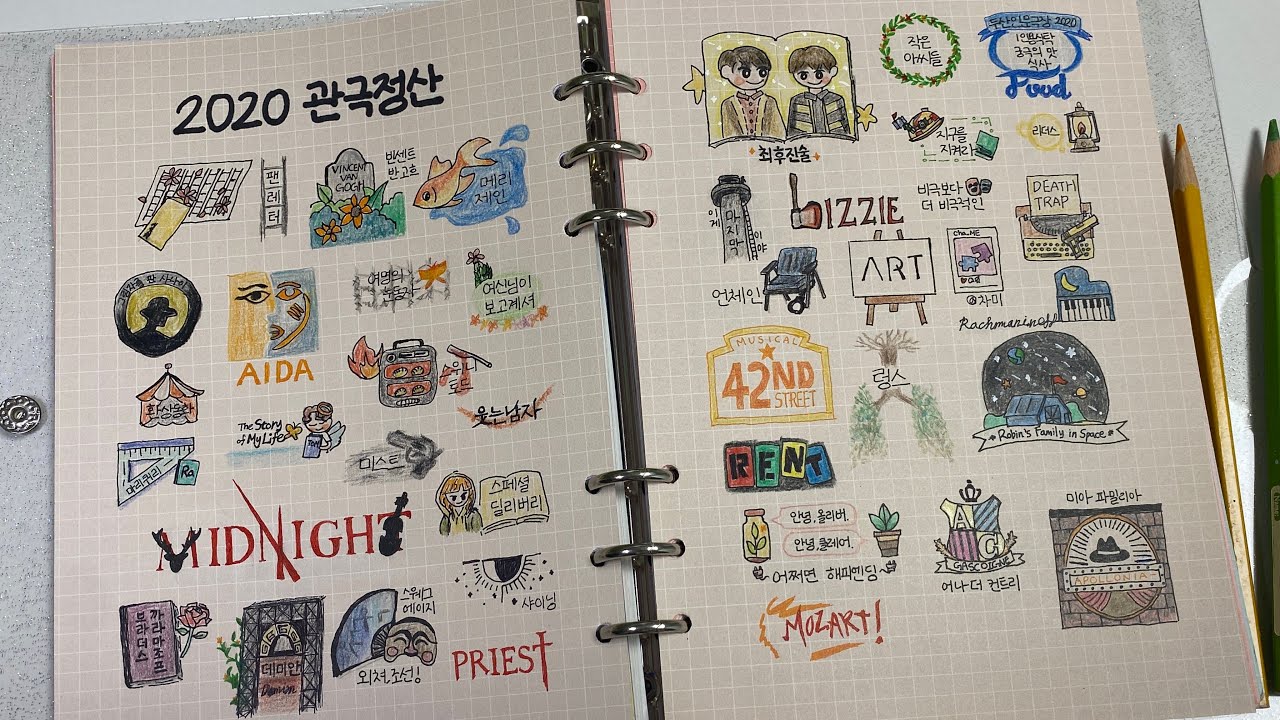 2020 관극정산
팬레터
VINCENT
VAN
GOGH
빈센트
반고흐
메리
제인
AIDA
여신님이
보고계셔
환상동화
The Story
of My Life
스위니
토드
웃는남자
마리퀴리
Ra
미스트
스페셜
딜리버리
MIDNIGHT
샤이닝
까라마조프
브라더스
데미안
Demian
스웨그
에이지
외쳐,조선!
PRIEST
최후진술
작은
아씨들
두산인문극장 2020
1인용식탁
궁극의 맛
식사
Food
지구를
지켜라
리더스
이게
마지막
이야
LIZZIE
비극보다
더 비극적인
DEATH
TRAP
언체인
ART
cha_ME
@차미
Rachmaninoff
MUSICAL
42ND
STREET
렁스
Robin's Family in Space
RENT
안녕, 올리버.
안녕, 클레어.
어쩌면 해피엔딩
A
C
GASCOIGNE
어나더 컨트리
미아 파밀리아
APOLLONIA
MOZART!